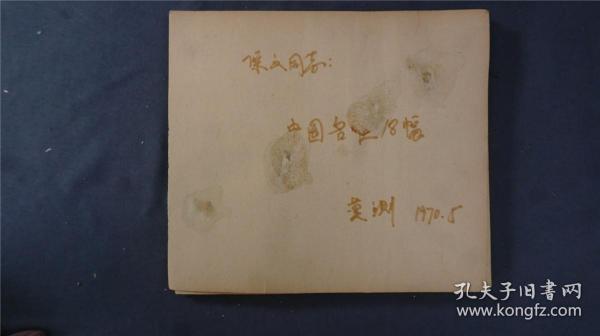 保文同志：
中国各地18幅
莫测 1970.5
孔夫子旧書网
www.kongfz.com